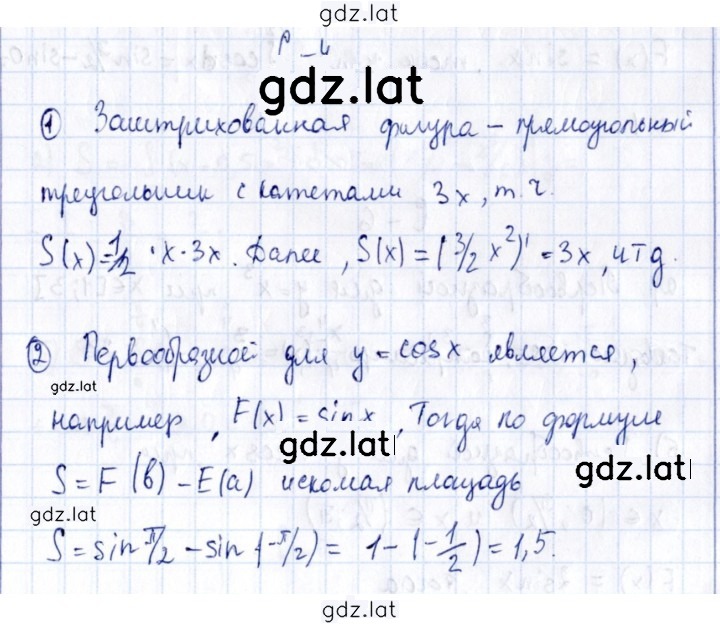 gdz.lat
P-4
gdz.lat
① Заштрихованная фигура – прямоугольный
треугольник с катетами 3x, т.ч.
S(x)=1/2 · x · 3x. Далее, S(x) = (3/2 x²)' = 3x, чтд.
② Первообразной для y = cos x является,
gdz.lat
например, F(x) = sin x, Тогда по формуле
gdz.lat
S = F(b) – E(a) искомая площадь
gdz.lat
gdz.lat
S = sin π/2 – sin(-π/2) = 1-(-1/2) = 1,5.
gdz.lat